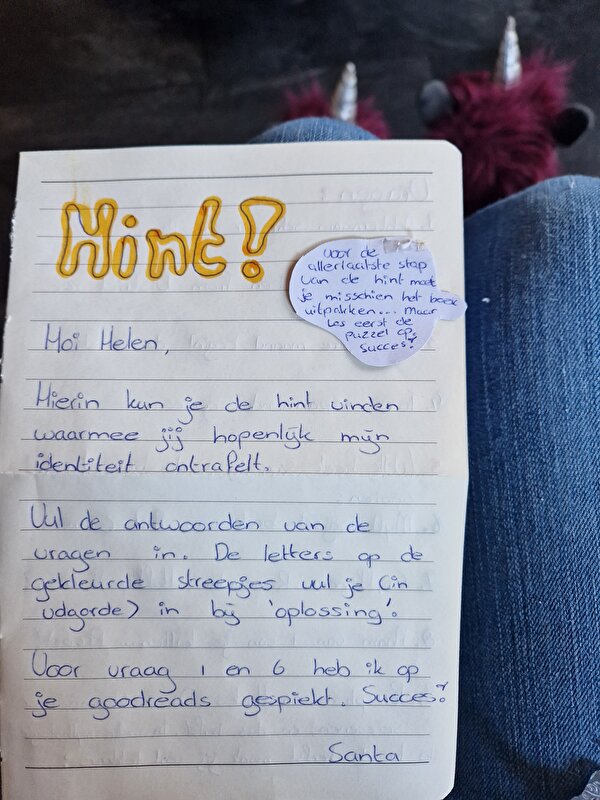 Hint!
voor de
allerlaatste stap
van de hint moet
je misschien het boek
uitpakken... Maar
los eerst de
puzzel op.
Succes!
Hoi Helen,
Hierin kun je de hint vinden
waarmee jij hopenlijk mijn
identiteit ontrafelt.
Vul de antwoorden van de
vragen in. De letters op de
gekleurde streepjes vul je (in
volgorde) in bij 'oplossing'.
Voor vraag 1 en 6 heb ik op
je goodreads gespiekt. Succes!
Santa